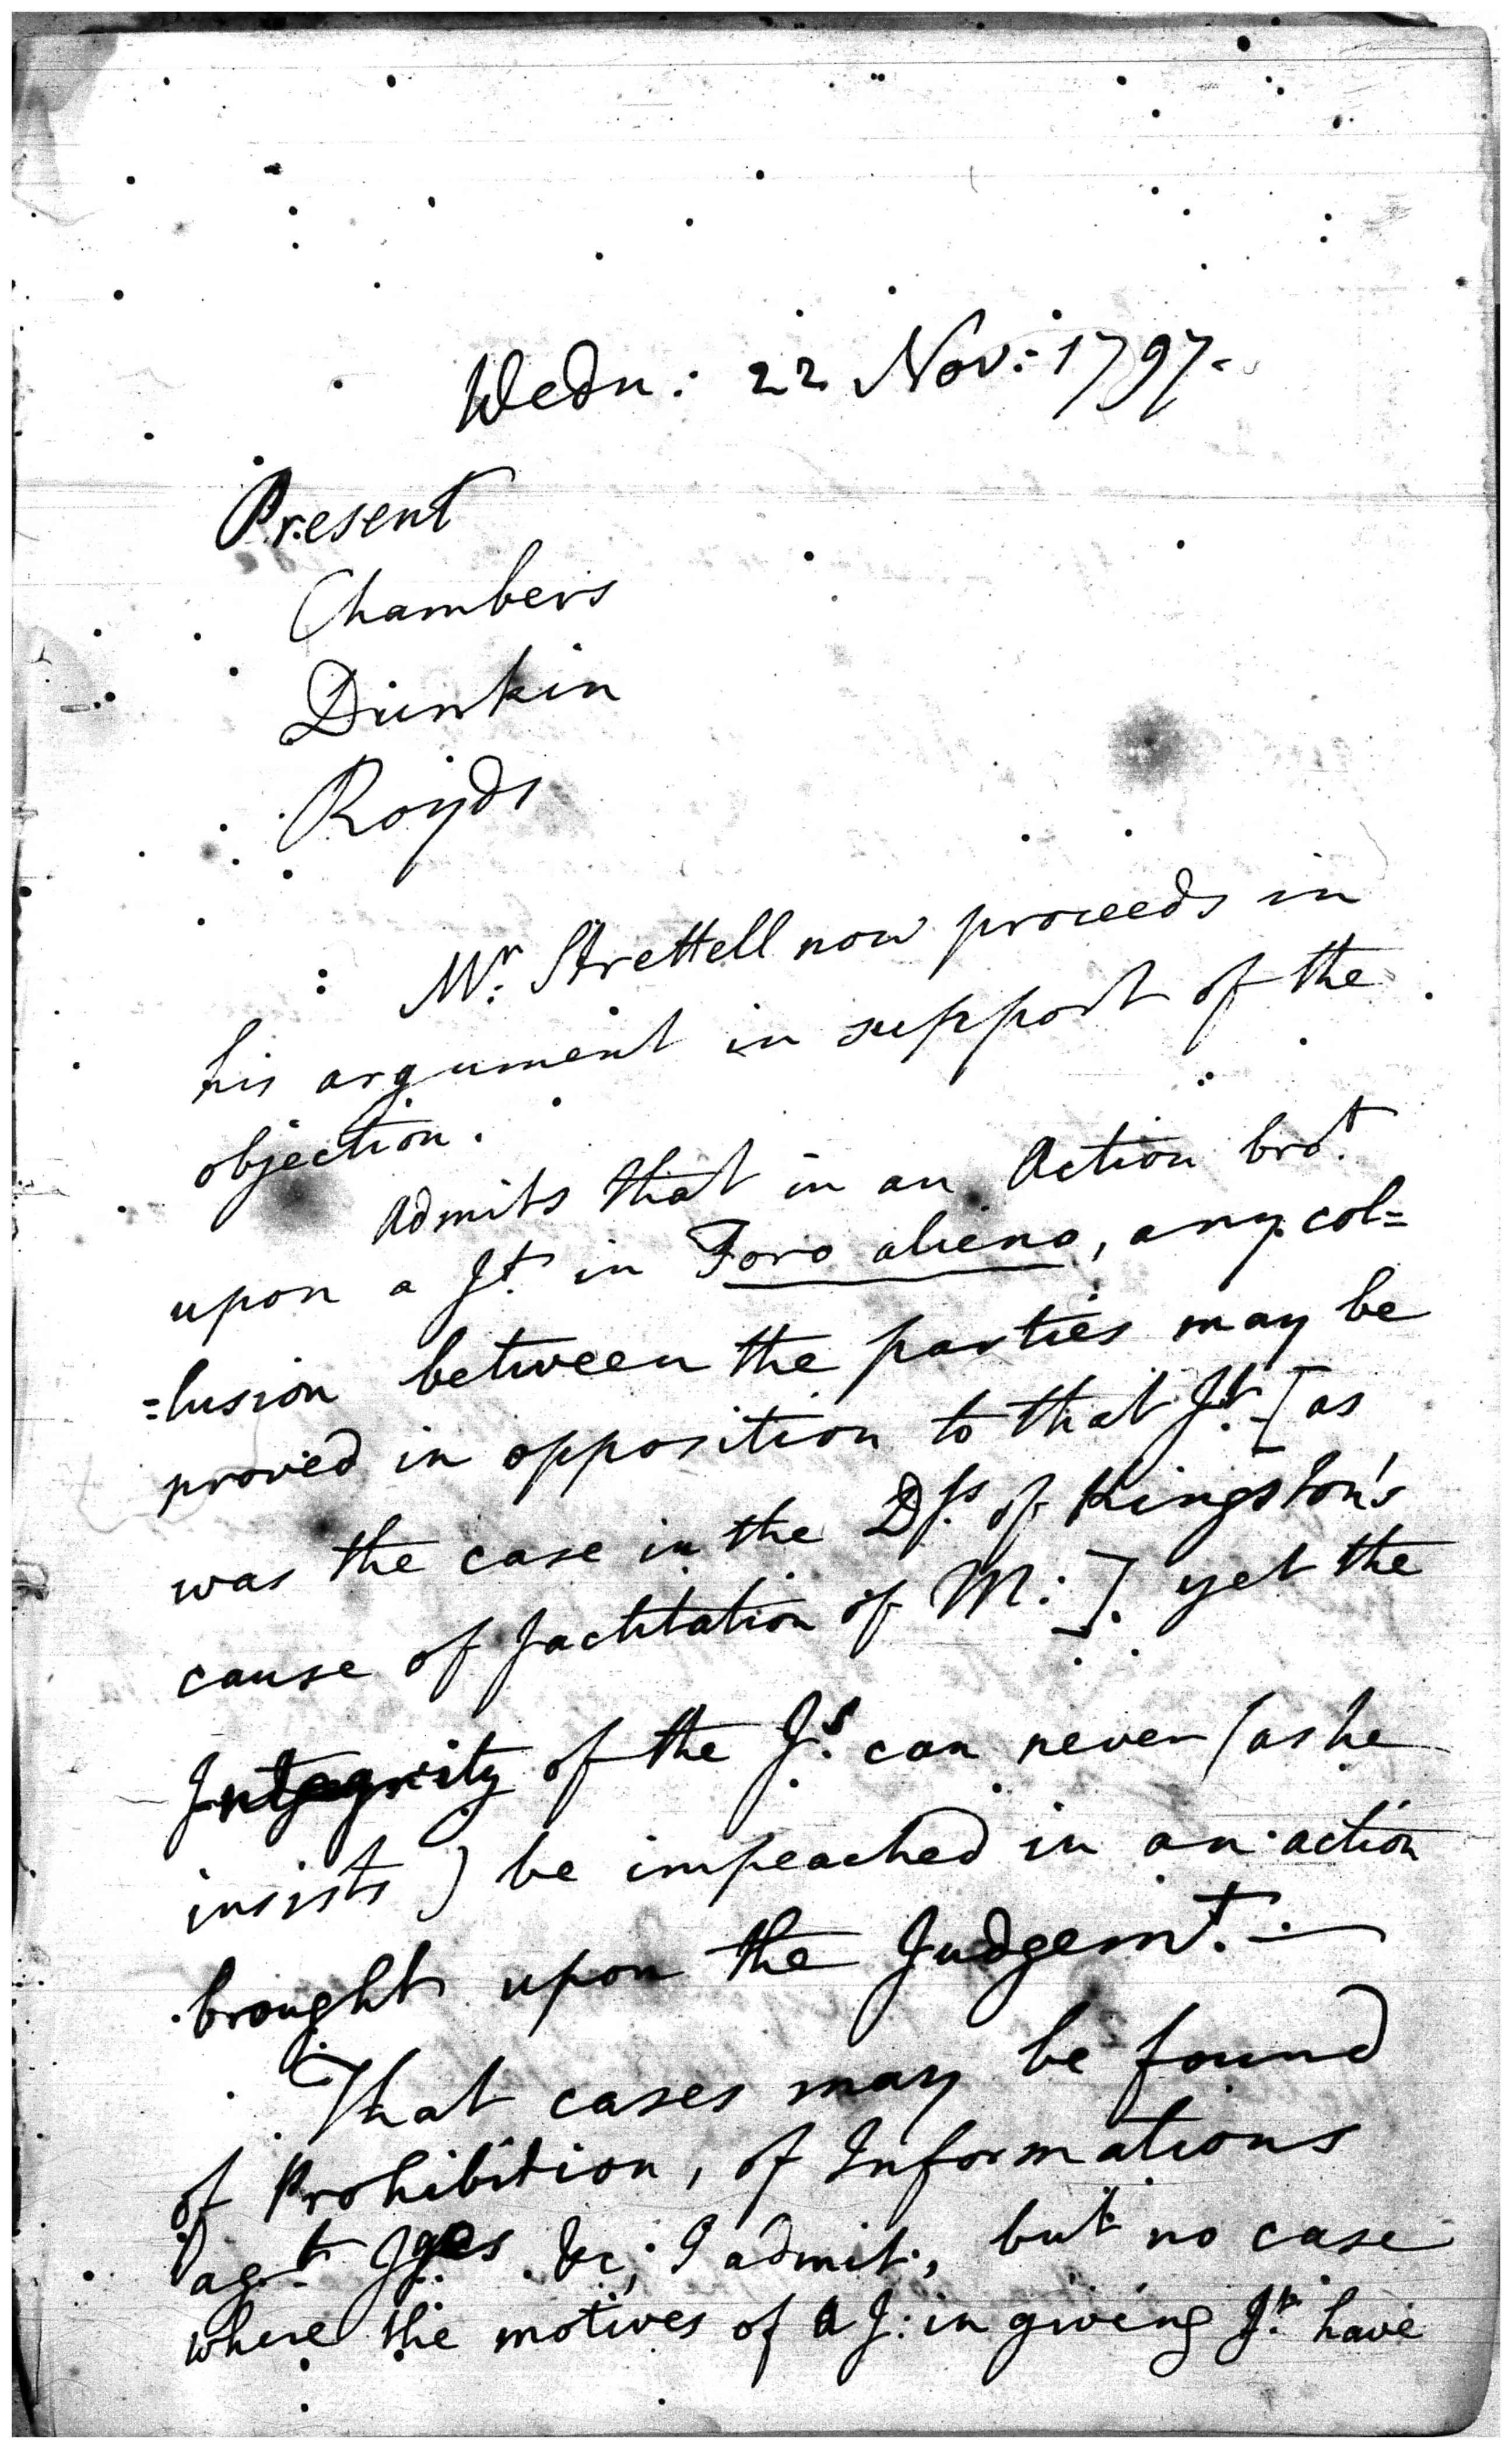 Wedn: 22 Nov: 1797.
Present
Chambers
Dunkin
Royds
Mr. Strettell now proceeds in
his argument in support of the
objection.
Admits that in an Action brot.
upon a Jt. in Foro alieno, any col=
=lusion between the parties may be
proved in opposition to that Jt. [as
was the case in the Dss. of Kingston's
cause of Jactitation of M:]. yet the
Integrity of the Js. can never (as he
insists) be impeached in an action
brought upon the Judgemt. —
That cases may be found
of Prohibition, of Informations
agt. Jges &c; I admit, but no case
where the motives of a J: in giving Jt. have